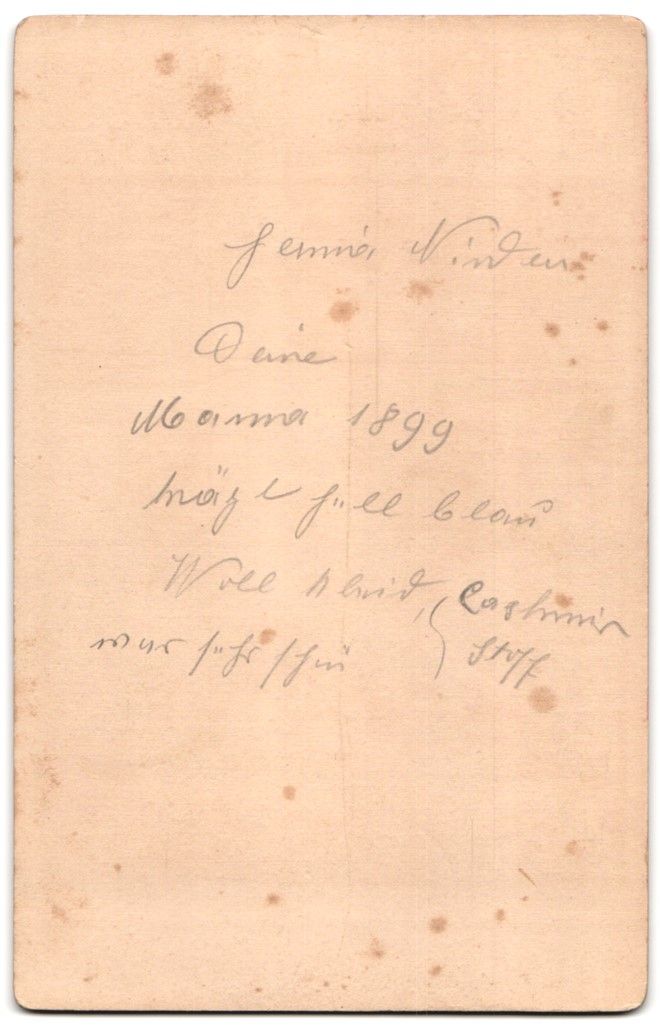 Deine
Mama 1899
trägt hell blau
Woll Kleid, (Cashmir
war sehr schön Stoff